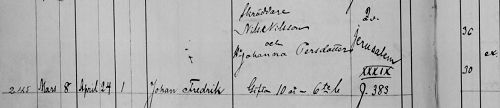 Skräddare 2o.
Nils Nilsson
och Jerusalem 36
Johanna Persdotter ex.
XXXIX 30
245 Mars 8 April 24 1 Johan Fredrik Giftin 10 år – 6te b J. 383